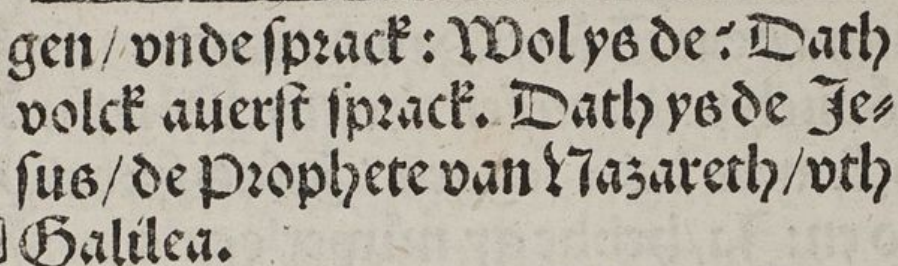 gen/ vnde sprack: Wol ys de? Dath
volck auerst sprack. Dath ys de Je⸗
sus/ de Prophete van Nazareth/ vth
Galilea.